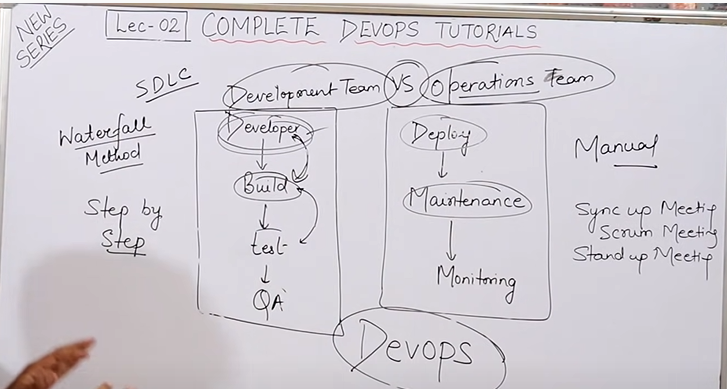 NEW
SERIES
Lec-02
COMPLETE DEVOPS TUTORIALS
SDLC
Development Team
VS
Operations Team
Waterfall
Method
Step by
Step
Developer
Build
test
QA
Deploy
Maintenance
Monitoring
Manual
Sync up Meeting
Scrum Meeting
Stand up Meeting
Devops